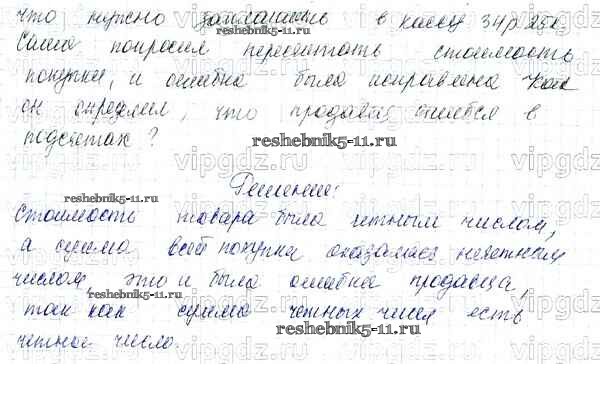 что нужно заплатить в кассу 34р 25к
Саша попросил пересчитать стоимость
покупки, и ошибка была исправлена Как
он определил, что продавец ошибся в
подсчетах?
reshebnik5-11.ru
reshebnik5-11.ru
Решение:
Стоимость товара была четным числом,
а сумма всей покупки оказалась нечетным
числом, это и была ошибка продавца,
reshebnik5-11.ru
так как сумма четных чисел есть
reshebnik5-11.ru
четное число.
vipgdz.ru